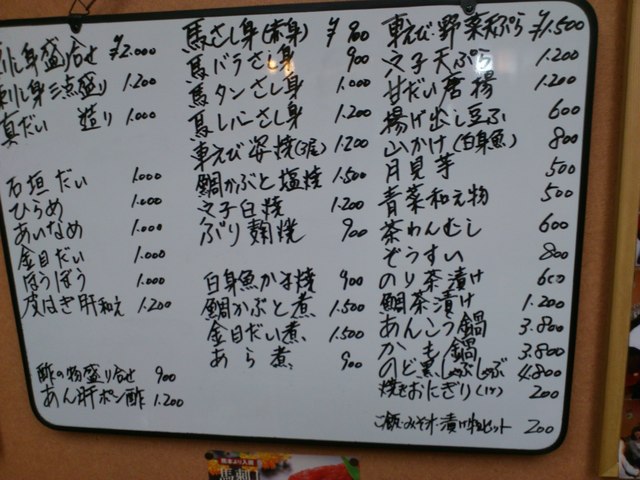 刺し身盛り合せ ¥2.000
刺し身三点盛り 1.200
真だい 造り 1.000
石垣だい 1.000
ひらめ 1.000
あいなめ 1.000
金目だい 1.000
ほうぼう 1.000
皮はぎ肝和え 1.200
酢の物盛り合せ 900
あん肝ポン酢 1.200
馬さし身(赤身) ¥900
馬バラさし身 900
馬タンさし身 1.000
馬レバーさし身 1.200
車えび姿焼(3尾) 1.200
鯛かぶと塩焼 1.500
穴子白焼 1.200
ぶり麹焼 900
白身魚かま焼 900
鯛かぶと煮 1.500
金目だい煮 1.500
あら煮 900
車えび野菜天ぷら ¥1.500
穴子天ぷら 1.200
甘だい唐揚 1.200
揚げ出し豆ふ 600
山かけ(白身魚) 800
月見芋 500
青菜和え物 500
茶わんむし 600
ぞうすい 800
のり茶漬け 600
鯛茶漬け 1.200
あんこう鍋 3.800
かも鍋 3.800
のど黒しゃぶしゃぶ 4.800
焼きおにぎり(1ケ) 200
ご飯・みそ汁・漬け物セット 200
熊本より入荷
馬刺し